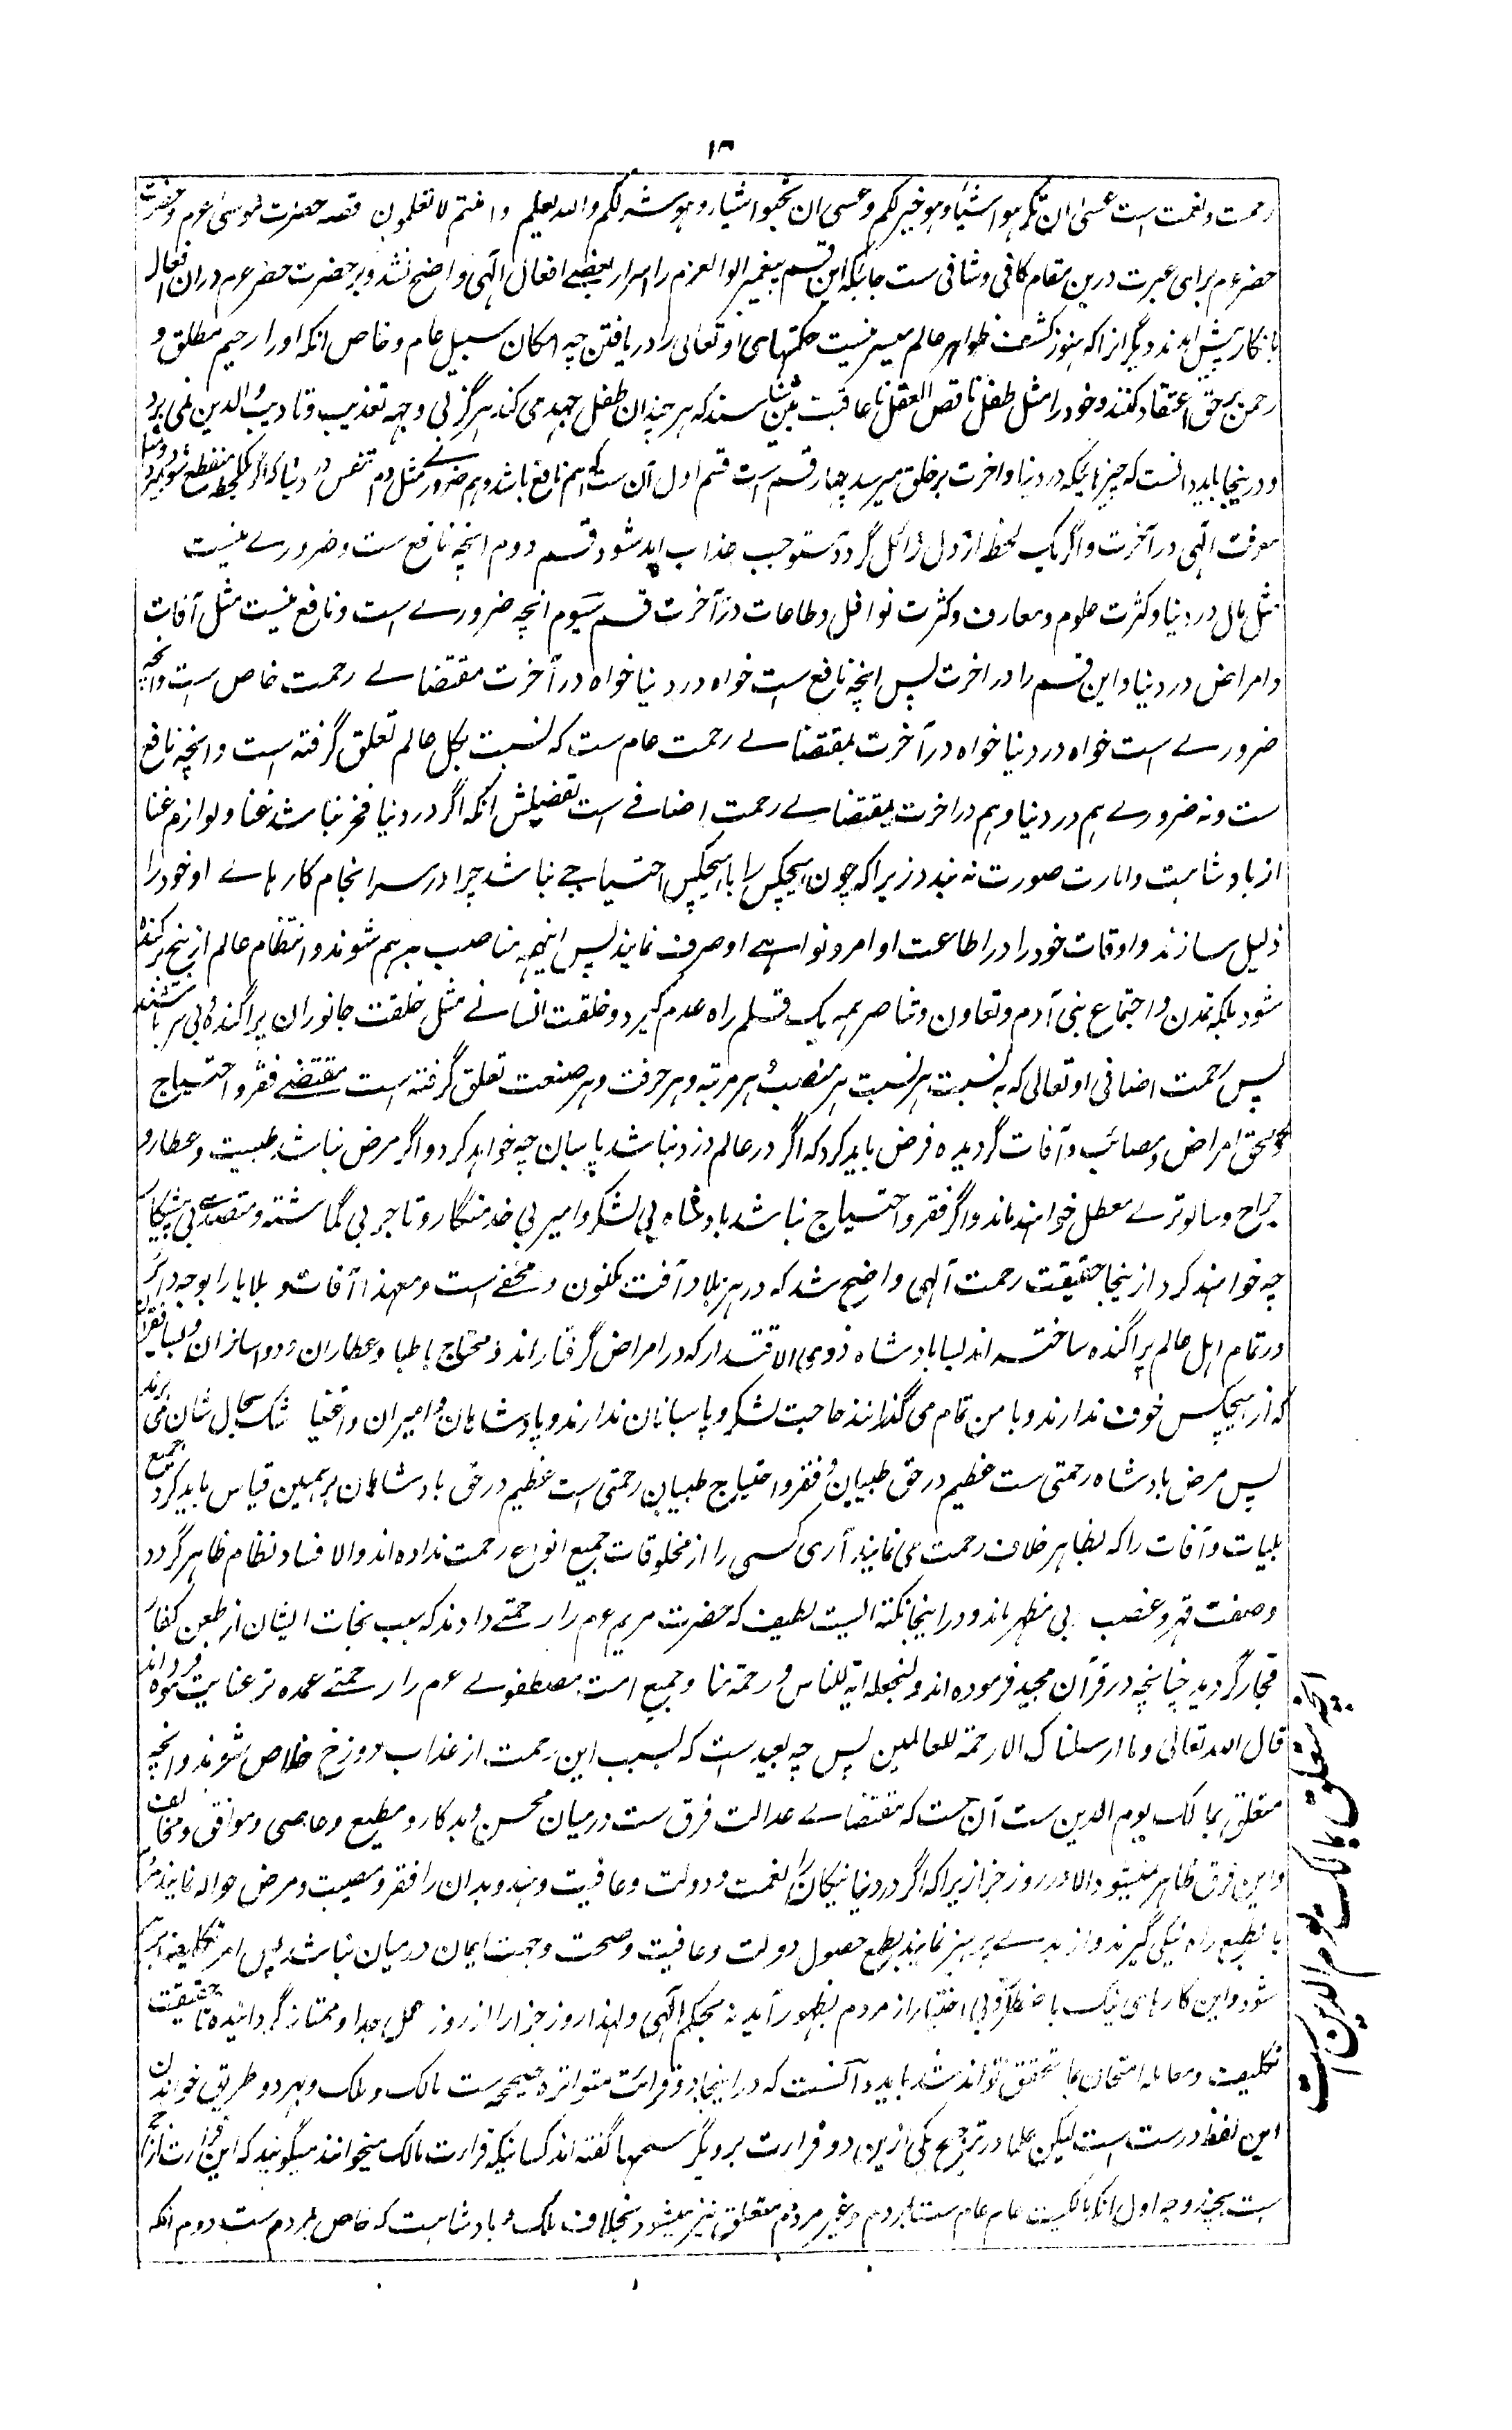 ۱۳
رحمت و نعمت ست عسیٰ ان تکرہوا شیئا و ہو خیر لکم و عسی ان تحبوا شیئا و ہو شر لکم و اللہ یعلم و انتم لا تعلمون قصہ حضرت موسیٰ عم و حضرت
خضر عم برای عبرت درین مقام کافی و شافی ست جائیکہ این قسم پیغمبر الوالعزم را اسرار بعضے افعال الٰہی واضح نشد و بر حضرت خضر عم در ان افعال
بانکار پیش امدند دیگرانرا کہ ہنوز کشف ظواہر عالم میسر نیست حکمتہای او تعالی را دریافتن چہ امکان سبیل عام و خاص انکہ او را رحیم مطلق و
رحمن برحق اعتقاد کنند و خود را مثل طفل ناقص العقل نا عاقبت بین شناسند کہ ہر چند ان طفل جہد می کند ہرگز بی وجہہ تعذیب و تادیب والدین نمی برد
و درینجا باید دانست کہ چیزہائیکہ در دنیا و اخرت بر خلق میرسد چہار قسم ست قسم اول آن ست کہ ہم نافع باشد و ہم ضروری مثل دم تنفس در دنیا کہ اگر یک لحظہ منقطع شود بمیرد و مثل
معرفت الٰہی در آخرت و اگر یک لحظہ از دل زائل گردد مستوجب عذاب ابد شود قسم دوم انچہ نافع ست و ضرورے نیست
مثل مال در دنیا و کثرت علوم و معارف و کثرت نوافل و طاعات در آخرت قسم سیوم انچہ ضرورے است و نافع نیست مثل آفات
و امراض در دنیا و این قسم را در اخرت پس انچہ نافع ست خواہ در دنیا خواہ در آخرت مقتضاے رحمت خاص ست و انچہ
ضرورے است خواہ در دنیا خواہ در آخرت بمقتضاے رحمت عام ست کہ نسبت بکل عالم تعلق گرفتہ است و انچہ نافع
ست و نہ ضرورے ہم در دنیا و ہم در اخرت بمقتضاے رحمت اضافے است تفصیلش انکہ اگر در دنیا فقر نباشد غنا و لوازم غنا
از بادشاہت و امارت صورت نہ بندد زیرا کہ چون ہیچکس را با ہیچکس احتیاجے نباشد چرا در سرانجام کارہاے او خود را
ذلیل سازند و اوقات خود را در اطاعت اوامر و نواہے او صرف نمایند پس اینہمہ مناصب برہم شوند و انتظام عالم از بیخ برکندہ
شود بلکہ تمدن و اجتماع بنی آدم و تعاون و تناصر ہمہ یک قلم راہ عدم گیرد و خلقت انسانے مثل خلقت جانوران پراگندہ بی سر باشند
پس رحمت اضافی او تعالی کہ بہ نسبت ہر نسبت ہر منصب و ہر مرتبہ و ہر حرفت و ہر صنعت تعلق گرفتہ است مقتضے فقر و احتیاج
و لحوق امراض و مصائب و آفات گردیدہ فرض باید کرد کہ اگر در عالم دزد نباشد پاسبان چہ خواہد کرد و اگر مرض نباشد طبیب و عطار و
جراح و سالوترے معطل خواہند ماند و اگر فقر و احتیاج نباشد بادشاہ بی لشکر و امیر بی خدمتگار و تاجر بی گماشتہ و متصدے بی پیشکار
چہ خواہند کرد از ینجا حقیقت رحمت آلہی واضح شد کہ در ہر بلا و آفت مکنون و مخفے است و معہذا آفات و بلایا را بوجہ دائر
در تمام اہل عالم پراگندہ ساختہ اند بسا بادشاہ ذوی الاقتدار کہ در امراض گرفتار اند و محتاج باطبا و عطاران و دواسازان و بسا فقرا
کہ از ہیچکس خوف ندارند و با من تمام می گذرانند حاجت لشکر و پاسبانان ندارند و پادشاہان و امیران و اغنیا شک بحال شان می برند
پس مرض بادشاہ رحمتی ست عظیم در حق طبیبان و فقر و احتیاج طبیبان رحمتی است عظیم در حق بادشاہان بر ہمین قیاس باید کرد جمیع
بلیات و آفات را کہ بظاہر خلاف رحمت می نمایند آری کسی را از مخلوقات جمیع انواع رحمت ندادہ اند و الا فساد نظام ظاہر گردد
و صفت قہر و غضب بی مظہر ماند و در اینجا نکتہ ایست لطیف کہ حضرت مریم عم را رحمتے دادند کہ سبب نجات ایشان از طعن کفار
فجار گردید چنانچہ در قرآن مجید فرمودہ اند و لنجعلہ ایہ للناس و رحمۃ منا و جمیع امت مصطفوے عم را رحمتے عمدہ تر عنایت فرمودہ اند
قال اللہ تعالیٰ و ما ارسلناک الا رحمۃ للعالمین پس چہ بعید ست کہ بسبب این رحمت از عذاب دوزخ خلاص شوند و انچہ
متعلق بمالک یوم الدین ست آن ست کہ مقتضاے عدالت فرق ست درمیان محسن و بدکار و مطیع و عاصی و موافق و مخالف
و این فرق ظاہر نمیشود الا در روز جزا زیرا کہ اگر در دنیا نیکان را نعمت و دولت و عافیت دہند و بدان را فقر و مصیبت و مرض حوالہ نمایند
بالطبع راہ نیکی گیرند و از بدے پرہیز نمایند بطمع حصول دولت و عافیت و صحت و جہت ایمان درمیان نباشد پس امر تکلیف
شود و این کارہای نیک باضطرار و بی اختیار از مردم بظہور آید نہ بحکم الٰہی و لہذا روز جزا را از روز عمل جدا و ممتاز گردانیدہ تا حقیقت
تکلیف و معاملہ امتحان متحقق تواند شد باید دانست کہ در اینجا دو قرائت متواترہ صحیحہ ست مالک و ملک و بہر دو طریق خواندن
این لفظ درست است لیکن علما در ترجیح یکی ازین دو قرارت بر دیگر سخنہا گفتہ اند کسانیکہ قرارت مالک میخوانند میگویند کہ این قرارت
ست بچند وجہ اول انکہ مالکیت عام ست بمردم و غیر مردم متعلق نیز میشود بخلاف ملک و بادشاہت کہ خاص بمردم ست دوم انکہ
انچہ متعلق بمالک یوم الدین است